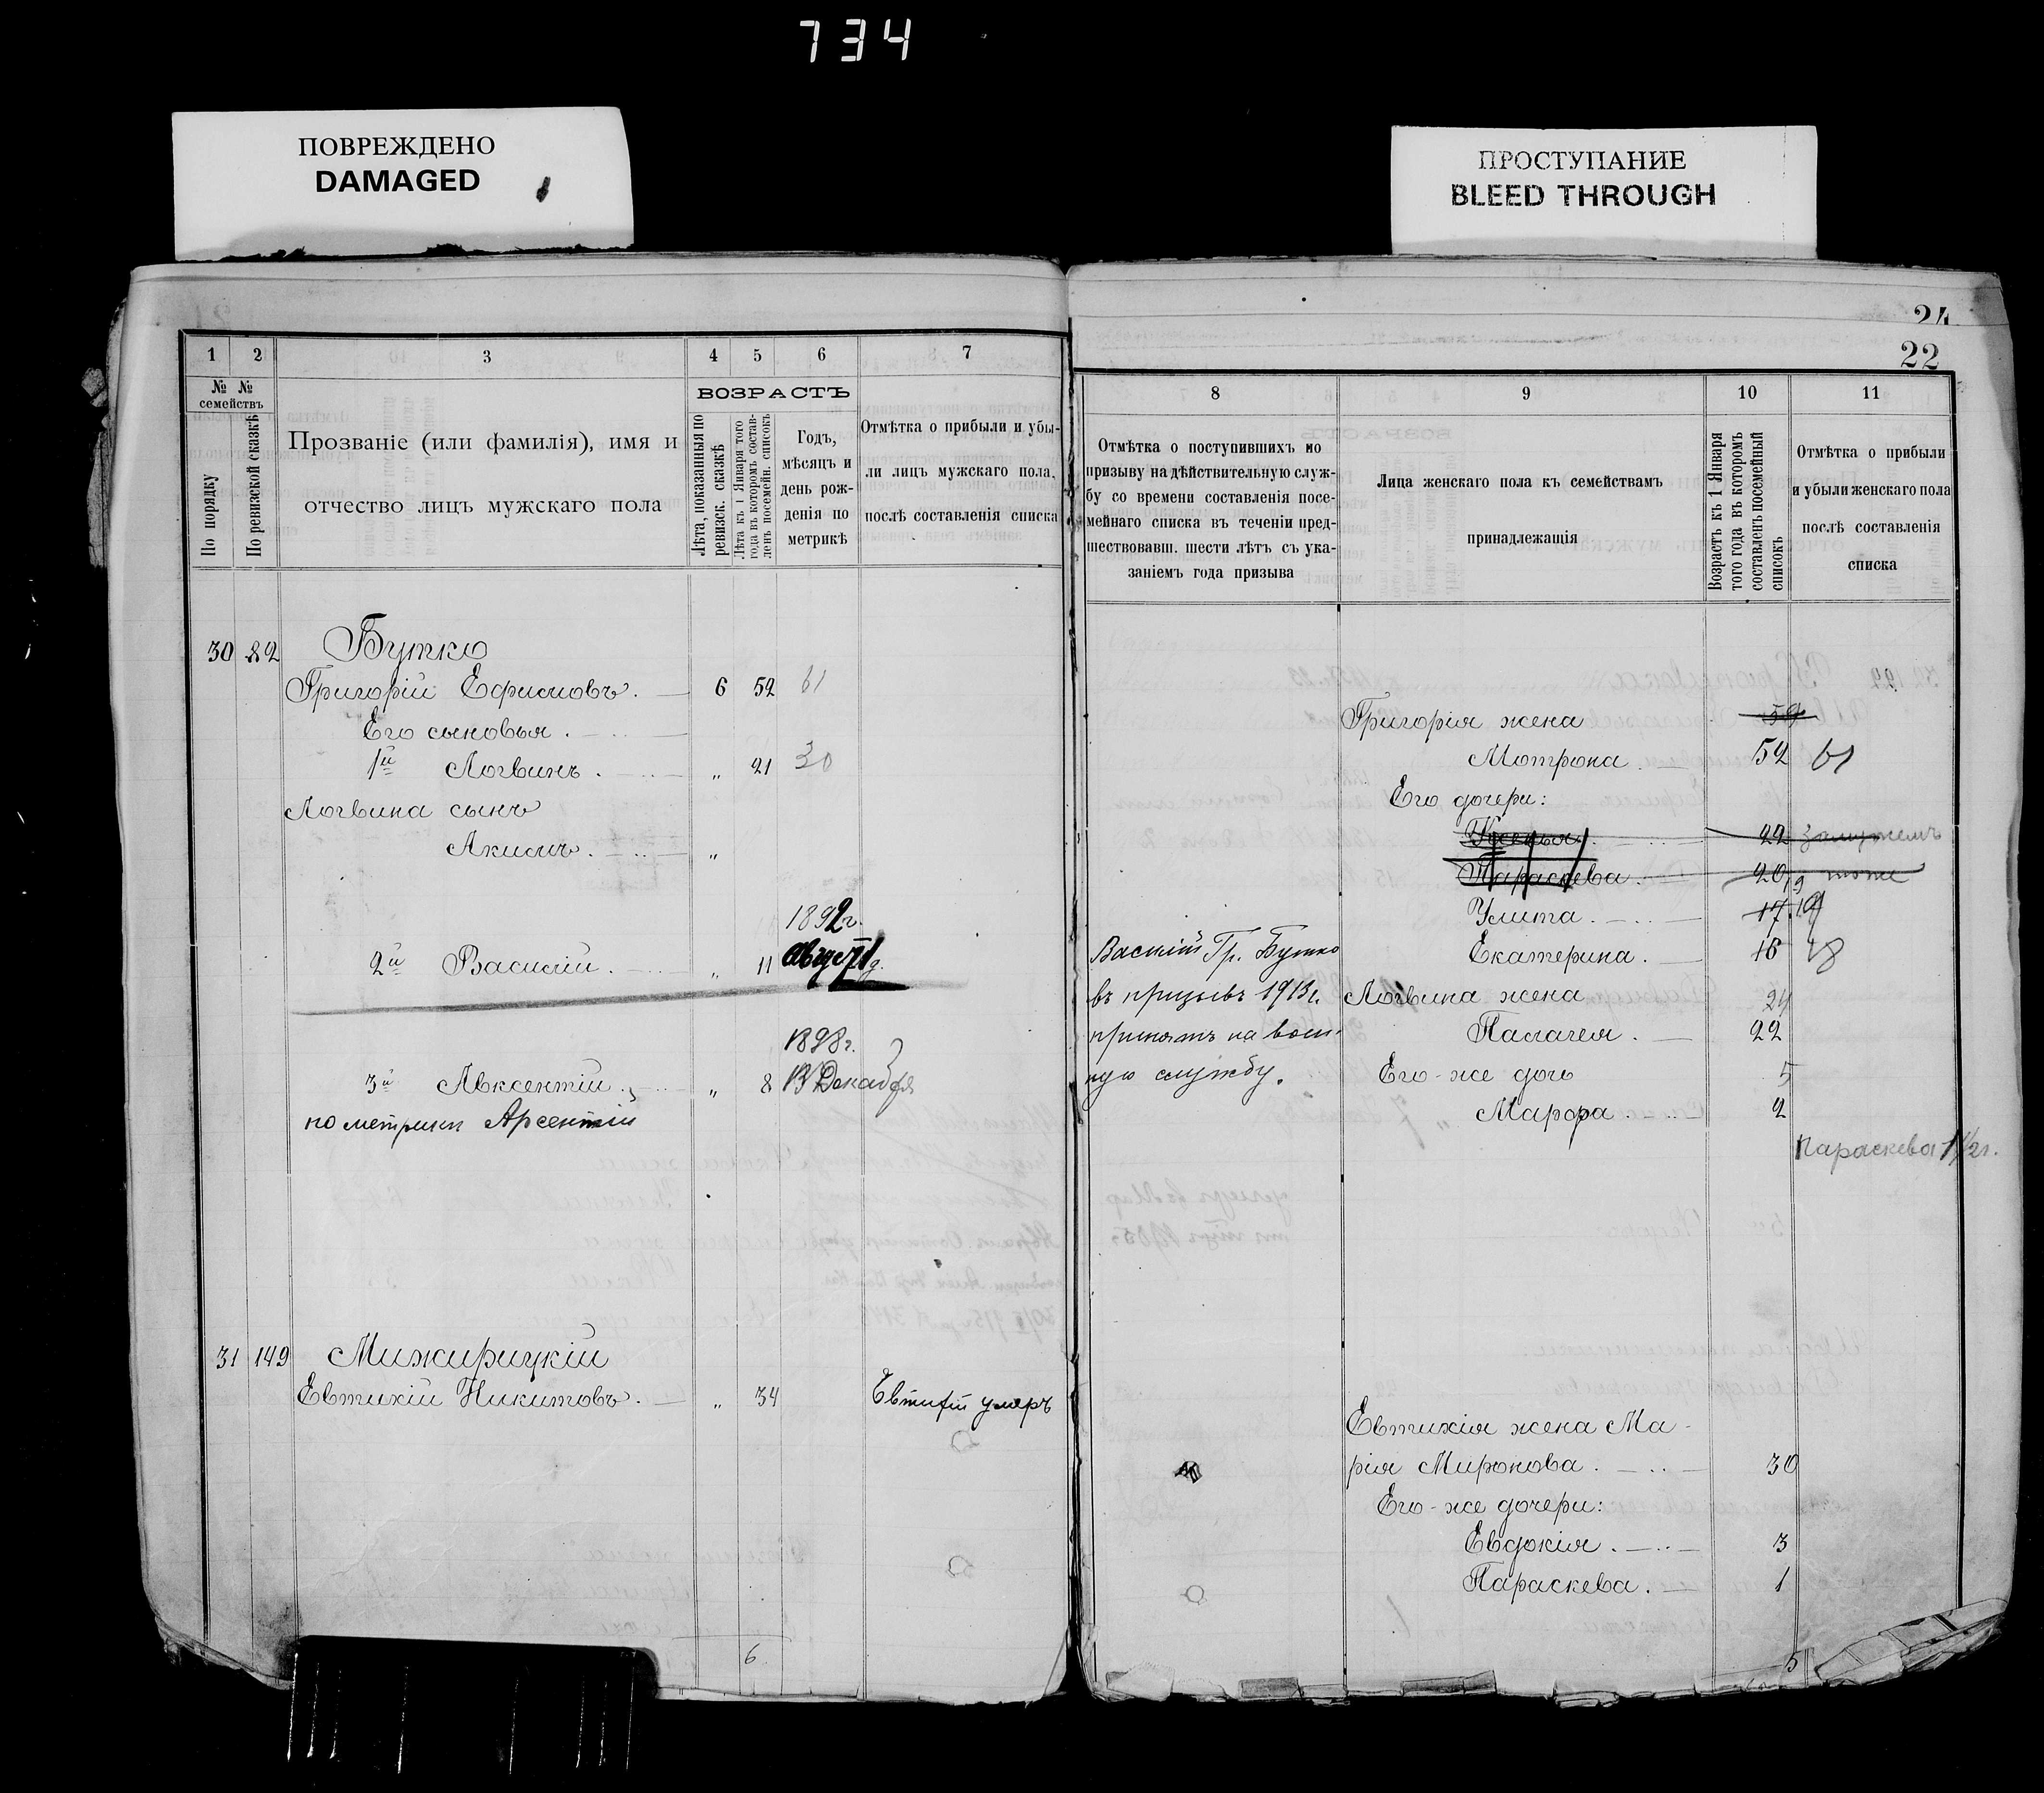 734
ПОВРЕЖДЕНО
DAMAGED
ПРОСТУПАНИЕ
BLEED THROUGH
24
22
1 2 3 4 5 6 7
№ № семействъ
По порядку
По ревизской сказкѣ
Прозваніе (или фамилія), имя и
отчество лицъ мужскаго пола
ВОЗРАСТЪ
Лѣта, показанныя по
ревизск. сказкѣ
Лѣта къ 1 Января того
года въ которомъ состав-
ленъ посемейн. списокъ
Годъ,
мѣсяцъ и
день рож-
денія по
метрикѣ
Отмѣтка о прибыли и убы-
ли лицъ мужскаго пола,
послѣ составленія списка
30 82 Бутко
Григорій Ефимовъ. 6 52 61
Его сыновья.
1й Логвинъ. „ 21 30
Логвина сынъ
Акимъ. „
1892г.
2й Василій. „ 11 Август
1898г.
3й Авксентій. „ 8 13 Декабря
по метрики Арсентій
31 149 Мижирицкій
Евтихій Никитовъ. „ 34 Евтифій умеръ
6
8 9 10 11
Отмѣтка о поступившихъ по
призыву на дѣйствительную служ-
бу со времени составленія посе-
мейнаго списка въ теченіи пред-
шествовавш. шести лѣтъ съ ука-
заніемъ года призыва
Лица женскаго пола къ семействамъ
принадлежащія
Возрастъ къ 1 Января
того года въ которомъ
составленъ посемейный
списокъ
Отмѣтка о прибыли
и убыли женскаго пола
послѣ составленія
списка
Григорія жена
Мотрона 52 61
Его дочери:
22 замужемъ
Параскева. 20 тоже
Улита. 17 19
Василій Гр. Бутко Екатерина. 16 18
въ призывъ 1913г. Логвина жена 24
принятъ на воен- Палагея. 22
ную службу. Его-же дочь 5
Марфа. 2
Параскева 1 1/2 г.
Евтихія жена Ма-
рія Миронова. 30
Его-же дочери:
Евдокія. 3
Параскева. 1
5